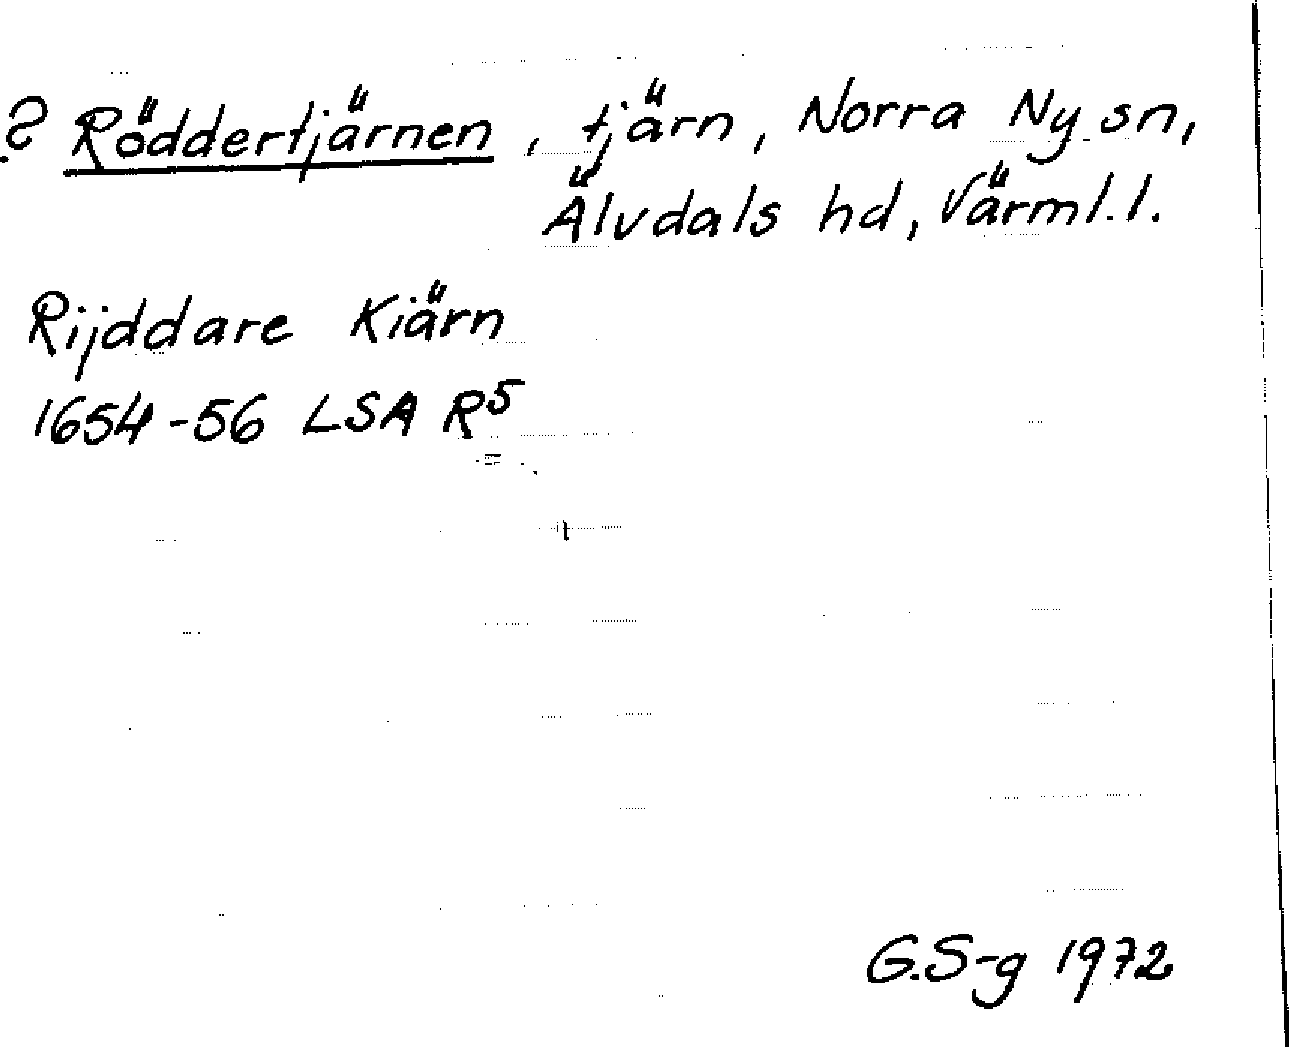 ? Röddertjärnen, tjärn, Norra Ny sn,
Älvdals hd, Värml. l.
Rijddare Kiärn
1654-56 LSA R5
G.S-g 1972